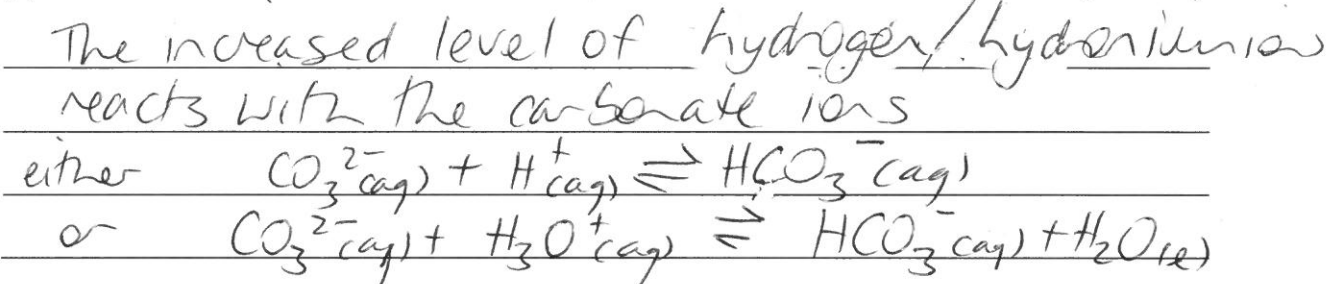 The increased level of hydrogen/hydronium ion
reacts with the carbonate ions
either CO₃²⁻(aq) + H⁺(aq) ⇌ HCO₃⁻(aq)
or CO₃²⁻(aq) + H₃O⁺(aq) ⇌ HCO₃⁻(aq) + H₂O(l)